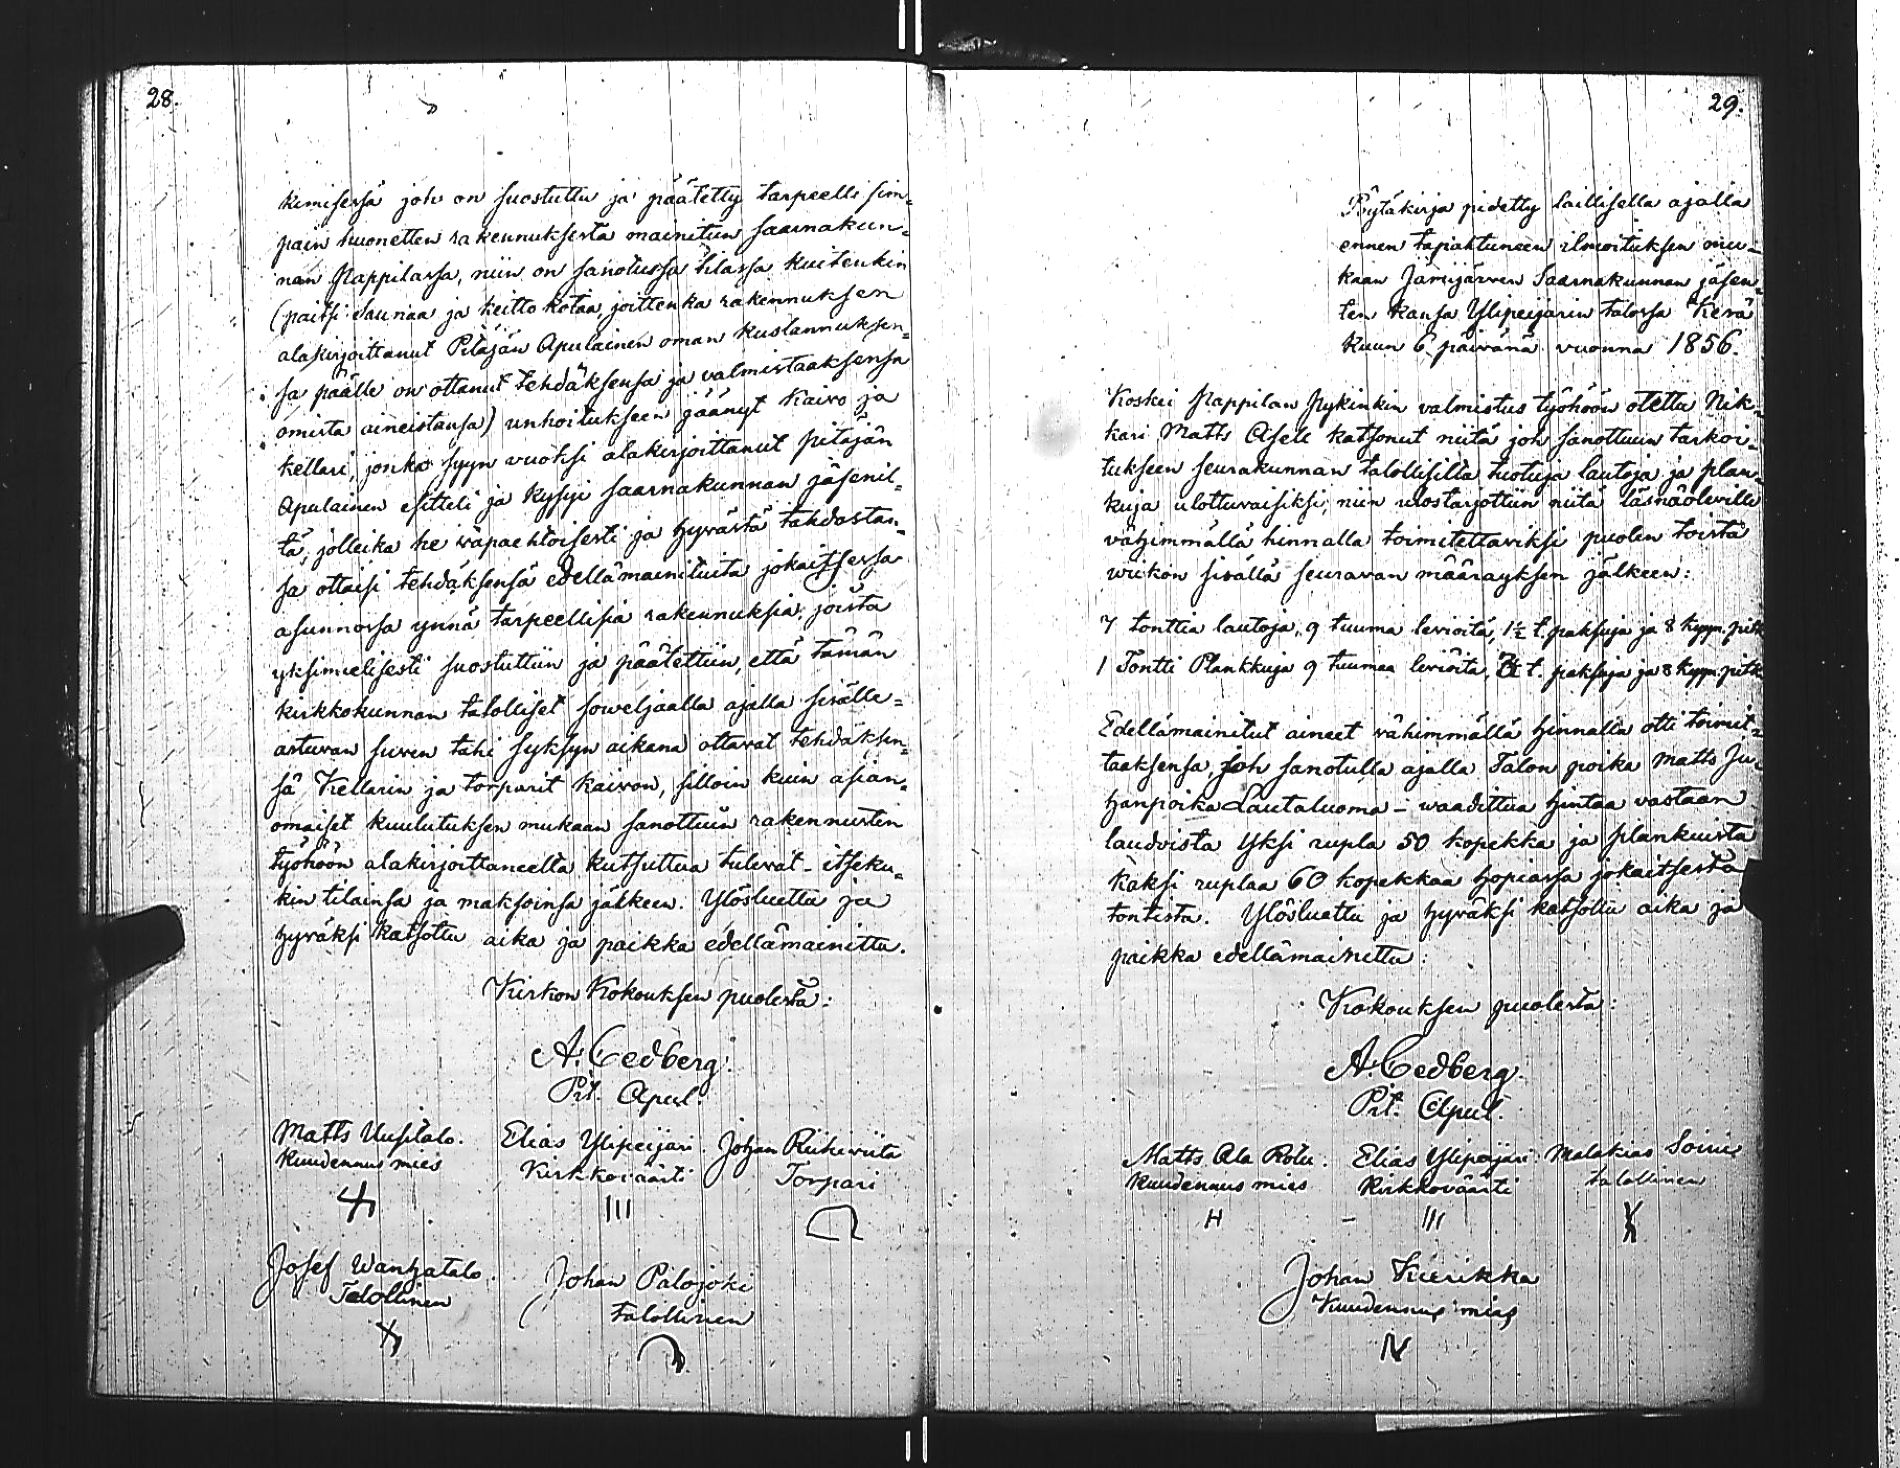 28.
kimisessa joh on suostuttu ja päätetty tarpeellisim=
pain huonetten rakennuksesta mainitun saarnakun=
nan pappilassa, niin on sanotussa tilassa kuitenkin
(paitsi Saunaa ja keitto kotaa, joittenka rakennuksen
alakirjoittanut Pitäjän Apulainen oman kustannuksen=
sa päälle on ottanut tehdäksensä ja valmistaaksensa
omista aineistansa) unhoitukseen jäänyt Kaivo ja
kellari, jonka syyn vuoksi alakirjoittanut pitäjän
Apulainen esitteli ja kysyi saarnakunnan jäsenil=
tä, jolleika he wapaehtoisesti ja hyvästä tahdostan=
sa ottaisi tehdäksensä edellämainituita jokaitsessa
asunnossa ynnä tarpeellisia rakennuksia, joista
yksimielisesti suostuttiin ja päätettiin, että tämän
kirkkokunnan talolliset soweljaalla ajalla sisälle=
astuvan suven tahi syksyn aikana ottavat tehdäksen=
sä Kellarin ja torparit kaivon, silloin kuin asian=
omaiset kuulutuksen mukaan sanottuin rakennusten
työhöön alakirjoittaneelta kutsuttua tulevat - itseku=
kin tilainsa ja maksoinsa jälkeen. Ylösluettu ja
hyväksi katsottu aika ja paikka edellämainittu.
Kirkon Kokouksen puolesta:
A. Cedberg.
Pit. Apul.
Matts Uusitalo. Elias Ylipeijari. Johan Riihiviita
Kuudennus mies Kirkkoväärti Torpari
III
Josef Wanhatalo. Johan Palojoki
Talollinen talollinen
29.
Pöytäkirja pidetty laillisella ajalla
ennen tapahtuneen ilmoituksen mu=
kaan Jämijärven Saarnakunnan jäsen=
ten kansa Ylipeijarin talossa Kesä
kuun 6 päivänä vuonna 1856.
Koska Pappilan pykinkin valmistus työhöön otettu Nik=
kari Matts Asell katsonut niitä joh sanottuun tarkoi=
tukseen seurakunnan talollisilta tuotuja lautoja ja plan=
kuja ulottuvaisiksi, niin ulostarjottiin niitä läsnäoleville
vähimmällä hinnalla toimitettaviksi puolen toista
wiikon sisällä seuravan määräyksen jälkeen:
7 tonttia lautoja, 9 tuuma levioitä, 1½ t. paksuja ja 8 kyyn. pitk
1 Tontti Plankkuja 9 tuumaa levioitä, t. paksuja ja 8 kyyn. pitk
Edellämainitut aineet vähimmällä hinnalla otti toimit=
taaksensa, joh sanotulla ajalla Talon poika Matts Ju=
hanpoika Lautaluoma - waadittua hintaa vastaan
laudoista Yksi rupla 50 kopekka ja plankuista
kaksi ruplaa 60 kopekkaa hopiassa jokaitsesta
tontista. Ylösluettu ja hyväksi katsottu aika ja
paikka edellämainittu:
Kokouksen puolesta:
A. Cedberg.
Pit. Apul.
Matts Ala Rölu. Elias Ylipeijari. Malakias Soini
Kuudennus mies Kirkkoväärti talollinen
H III
Johan Kiirikka
Kuudennus mies
N